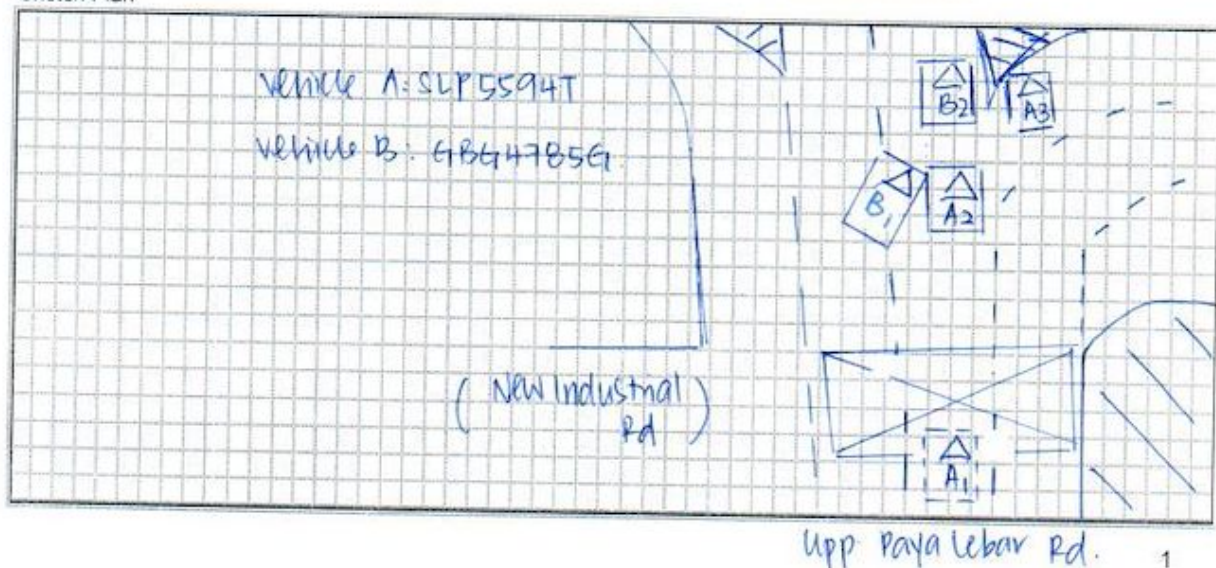 Sketch Plan
Vehicle A: SLP5594T
Vehicle B: GBG4785G
B2
A3
B1
A2
(New Industrial Rd)
A1
Upp Paya Lebar Rd.
1